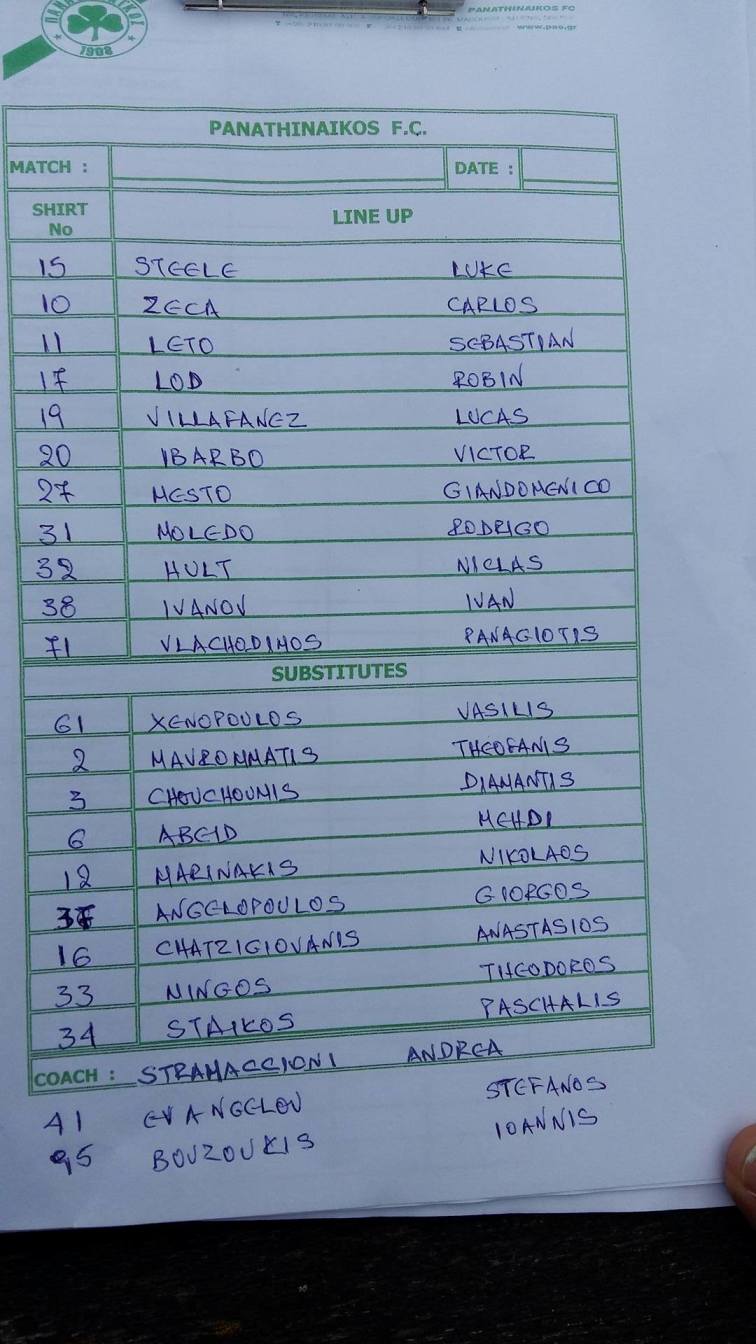 1908
PANATHINAIKOS FC
www.pao.gr
PANATHINAIKOS F.C.
MATCH : DATE :
SHIRT No LINE UP
15 STEELE LUKE
10 ZECA CARLOS
11 LETO SEBASTIAN
17 LOD ROBIN
19 VILLAFANEZ LUCAS
20 IBARBO VICTOR
27 MESTO GIANDOMENICO
31 MOLEDO RODRIGO
32 HULT NICLAS
38 IVANOV IVAN
71 VLACHODIMOS PANAGIOTIS
SUBSTITUTES
61 XENOPOULOS VASILIS
2 MAVROMMATIS THEOFANIS
3 CHOUCHOUMIS DIAMANTIS
6 ABEID MEHDI
12 MARINAKIS NIKOLAOS
ANGELOPOULOS GIORGOS
16 CHATZIGIOVANIS ANASTASIOS
33 NINGOS THEODOROS
34 STAIKOS PASCHALIS
COACH : STRAMACCIONI ANDREA
41 EVANGELOU STEFANOS
95 BOUZOUKIS IOANNIS